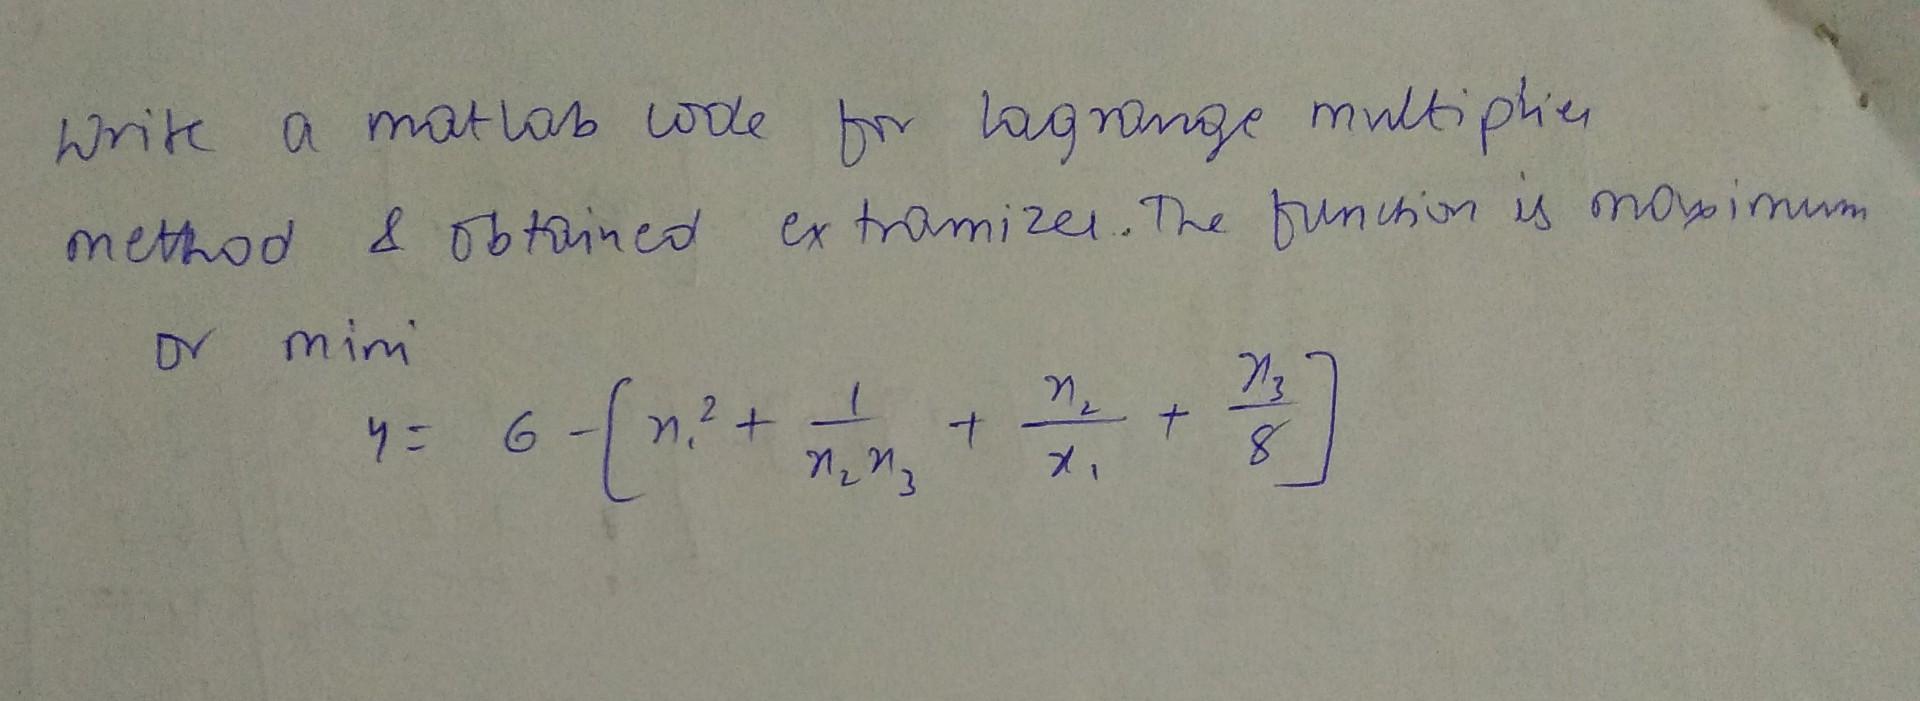 Write a matlab code for lagrange multiplier
method & obtained extramizer. The function is maximum
or mini
y = 6 - [x₁² + 1/(x₂x₃) + x₂/x₁ + x₃/8]